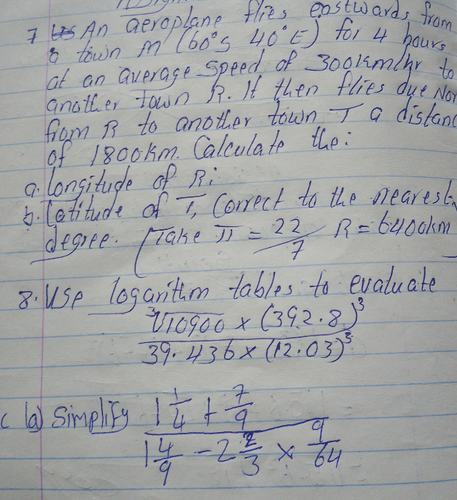 7 An aeroplane flies eastwards from
a town M (60°S 40°E) for 4 hours
at an average speed of 300km/hr to
another town R. If then flies due Nor
from R to another town T a distan
of 1800km. Calculate the:
a. longitude of R;
b. Latitude of T, Correct to the nearest
degree. (Take π = 22/7 R = 6400km
8. Use logarithm tables to evaluate
∛10900 × (392.8)³
39.436 × (12.03)³
c (a) Simplify 1 1/4 + 7/9
1 4/9 - 2 2/3 × 9/64